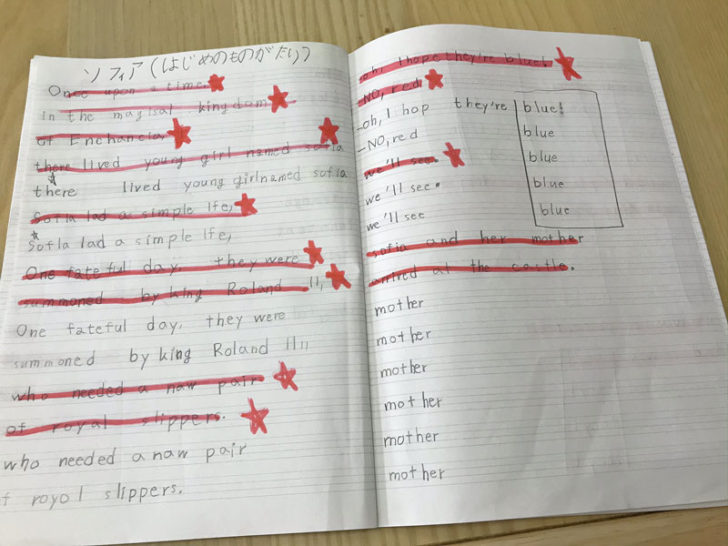 ソフィア(はじめのものがたり)
Once upon a time,
in the magisal kingdom
of Enchancia,
there lived young girl named sofia
there lived young girl named sofia
Sofia lad a simple lfe,
Sofla lad a simple lfe,
One fateful day, they were
summoned by king Roland II,
One fateful day, they were
summoned by king Roland II,
who needed a naw pair
of royal slippers.
who needed a naw pair
f royol slippers.
oh, I hope they're blue!
-NO, red
-oh, I hop they're blue!
-NO, red
blue
blue
blue
blue
we'll see.
we'll see.
we'll see
sofia and her mother
arrived at the castle.
mother
mother
mother
mother
mother
mother